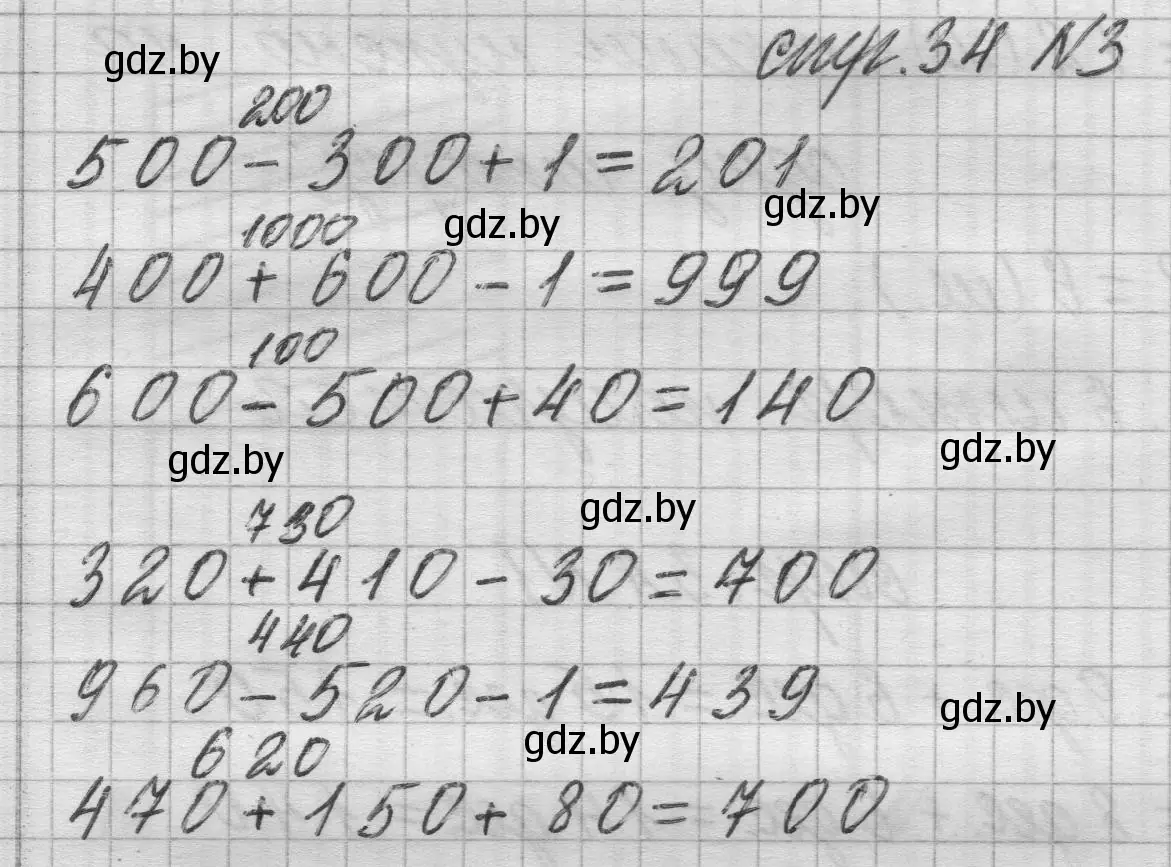 gdz.by
стр. 34 №3
200
500 - 300 + 1 = 201
gdz.by
1000
gdz.by
400 + 600 - 1 = 999
100
600 - 500 + 40 = 140
gdz.by
gdz.by
730
gdz.by
320 + 410 - 30 = 700
440
960 - 520 - 1 = 439
gdz.by
620
gdz.by
470 + 150 + 80 = 700